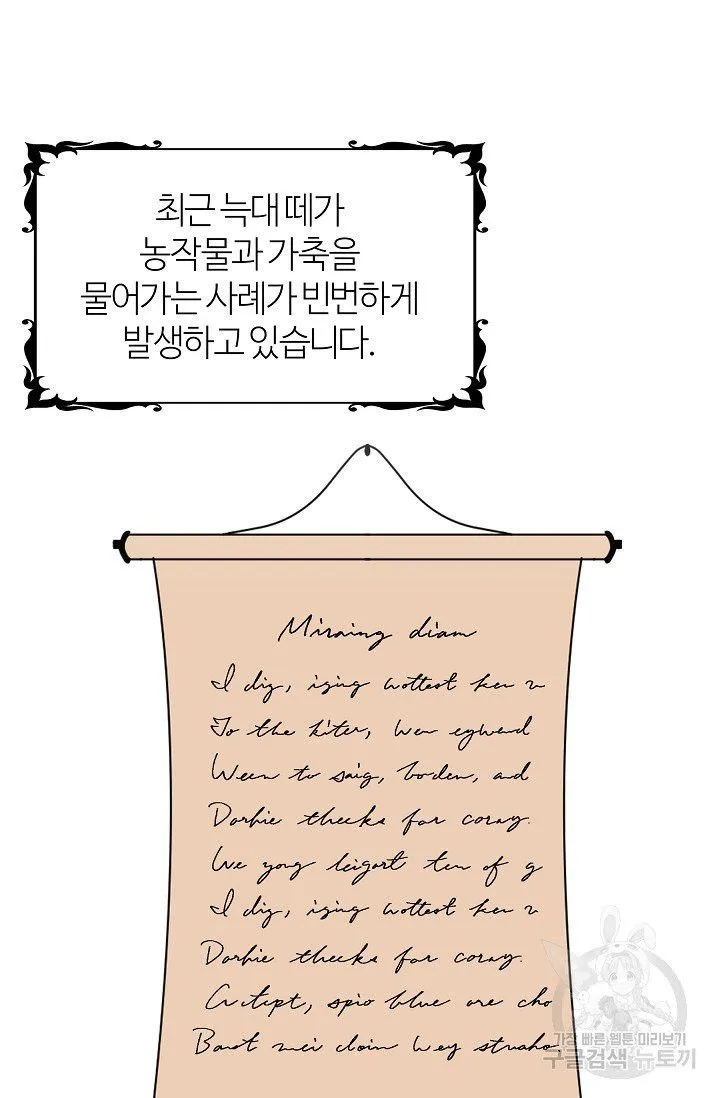 최근 늑대 떼가
농작물과 가축을
물어가는 사례가 빈번하게
발생하고 있습니다.
Miraing diam
I dig, iging wottest ken
To the kiter, wen
Ween to saig, boden, and
Dorhie thecks for coray.
We yong leigort ten of g
I dig, iging wottest ken
Dorhie thecks for coray.
spio blue ore cho
Baret mei doin wey
가장 빠른 웹툰 미리보기
구글검색 뉴토끼